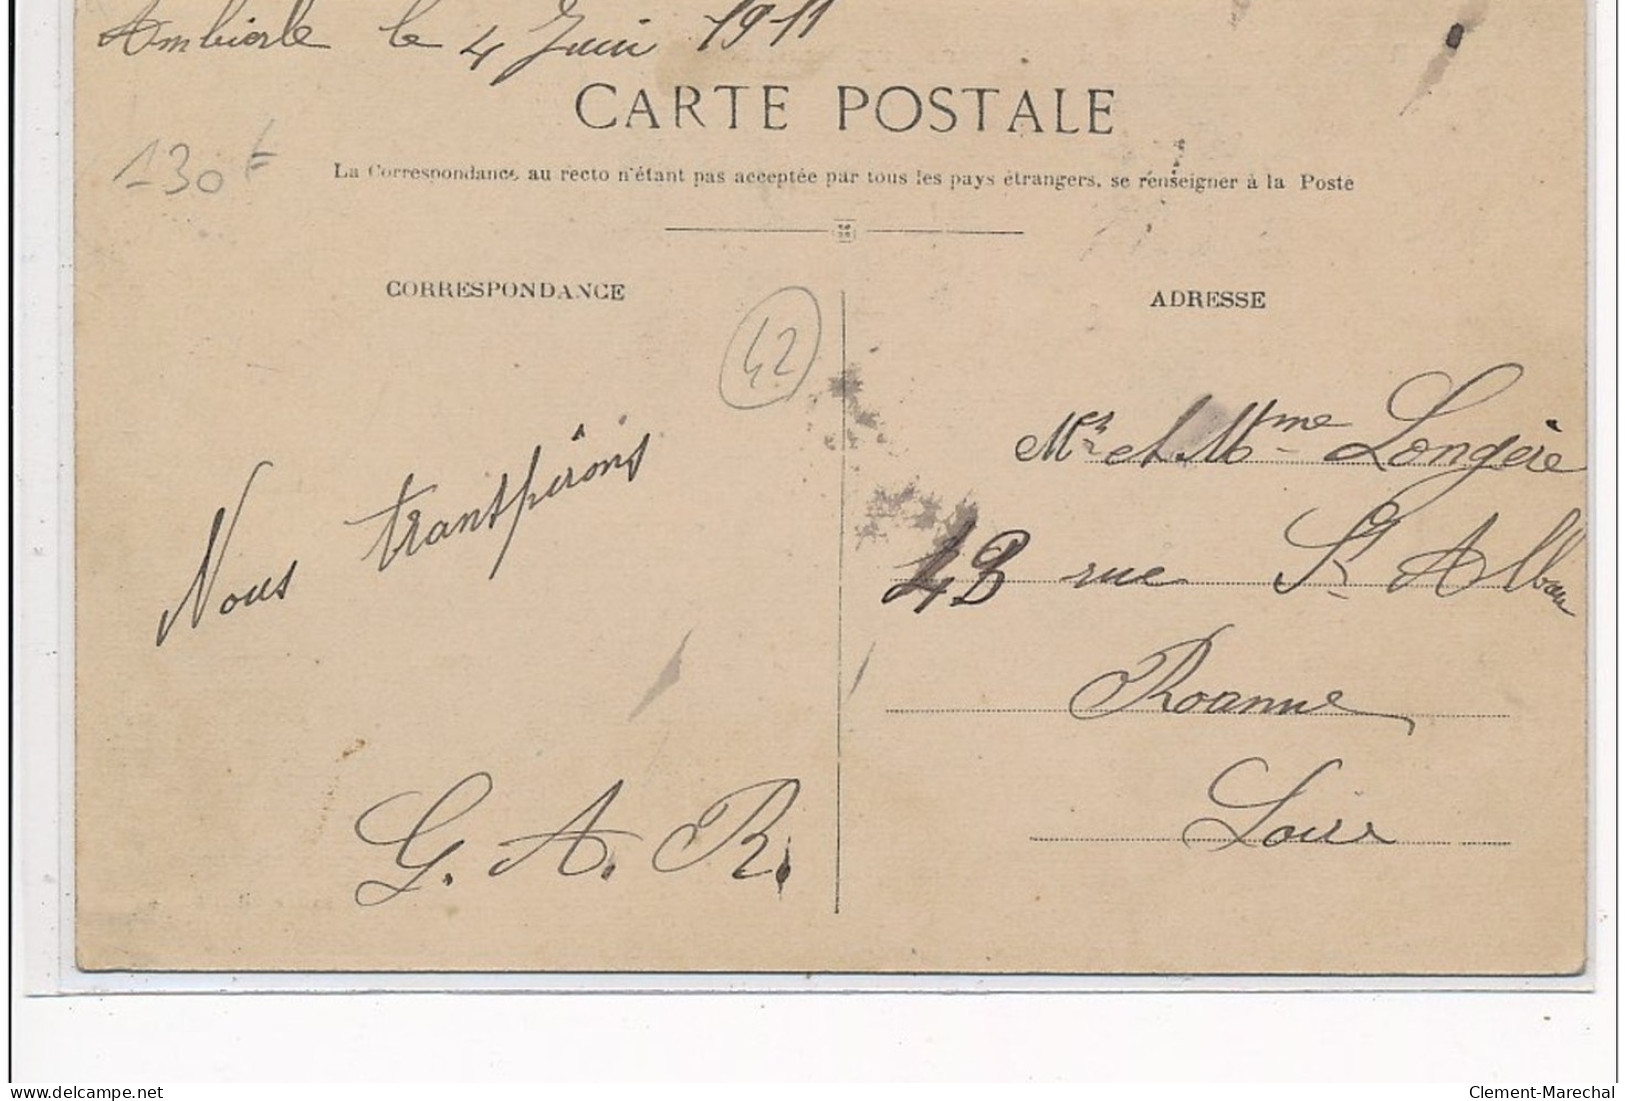 Ambierle le 4 Juin 1911
CARTE POSTALE
130 F
La Correspondance au recto n'étant pas acceptée par tous les pays étrangers, se renseigner à la Poste
CORRESPONDANCE
42
Nous transpirons
G. A. R.
ADRESSE
Mr et Mme Longère
43 rue St Alban
Roanne
Loire
www.delcampe.net
Clement-Marechal